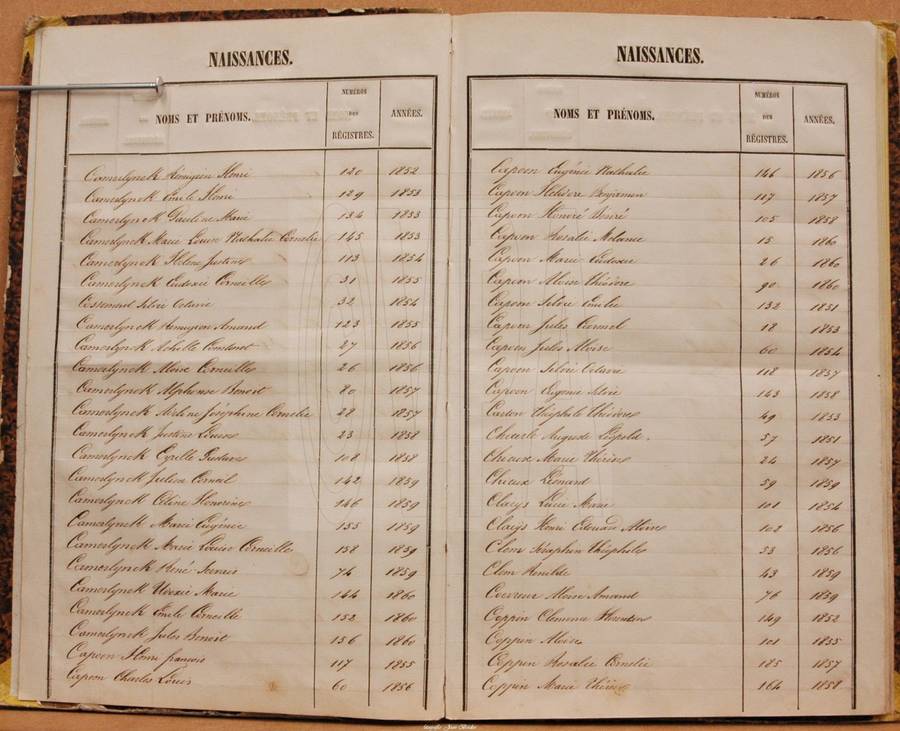 NAISSANCES.
NOMS ET PRÉNOMS. NUMÉROS DES RÉGISTRES. ANNÉES.
Camerlynck Remigien Henri 120 1852
Camerlynck Emile Henri 129 1853
Camerlynck Pauline Marie 134 1853
Camerlynck Marie Louise Nathalie Cornelie 145 1853
Camerlynck Hélène Justine 113 1854
Camerlynck Eudoxie Corneille 31 1855
Silvie Octavie 32 1854
Camerlynck Amand 123 1855
Camerlynck Achille Constant 27 1856
Camerlynck Aloise Corneille 26 1856
Camerlynck Alphonse Benoit 80 1857
Camerlynck Joséphine Cornelie 28 1857
Camerlynck Justine Louise 23 1858
Camerlynck Cyrille Gustave 108 1858
Camerlynck Julien Corneil 142 1859
Camerlynck Céline Honorine 146 1859
Camerlynck Marie Eugénie 155 1859
Camerlynck Marie Louise Corneille 158 1859
Camerlynck René Servais 74 1859
Camerlynck Marie 144 1860
Camerlynck Emile Corneille 152 1860
Camerlynck Jules Benoit 156 1860
Capoen Henri françois 117 1855
Capoen Charles Louis 60 1856
NAISSANCES.
NOMS ET PRÉNOMS. NUMÉROS DES RÉGISTRES. ANNÉES.
Capoen Eugénie Nathalie 146 1856
Capoen Héliodore Benjamin 117 1857
Capoen Honoré Désiré 105 1858
Capoen Rosalie Melanie 15 1860
Capoen Marie Eudoxie 26 1860
Capoen Aloise Théodore 90 1860
Capoen Silvie Emilie 132 1851
Capoen Jules Corneil 18 1853
Capoen Jules Aloise 60 1854
Capoen Silvie Octavie 118 1857
Capoen Eugenie Silvie 143 1858
Carton Théophile Théodore 49 1853
Charle Auguste Léopold. 57 1851
Chieux Marie Thérèse 24 1857
Chieux Léonard 59 1859
Claeys Lucie Marie 101 1854
Claeys Henri Edouard Aloise 102 1856
Clem Séraphin Théophile 53 1856
Clem Romilde 43 1859
Coevoux Aloise Amand 76 1859
Coppin Clemence Florentine 149 1852
Coppin Aloise 101 1855
Coppin Rosalie Cornelie 185 1857
Coppin Marie Thérèse 164 1858